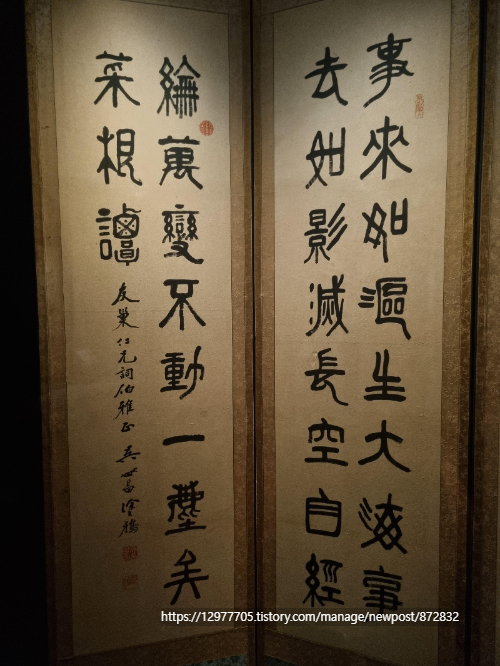 事來如漚生大海事
去如影滅長空自經
綸萬變不動一塵矣
菜根譚
友巢仁兄詞伯雅正 吳世昌塗鴉
https://12977705.tistory.com/manage/newpost/872832